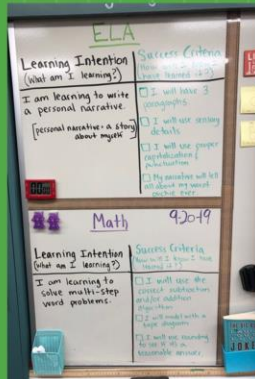 ELA
Learning Intention
(What am I learning?)
I am learning to write
a personal narrative.
[personal narrative = a story
about myself]
Success Criteria
learned it?)
I will have 3
paragraphs
I will use sensory
details
I will use proper
capitalization &
punctuation
My narrative will tell
all about my worst
Math
9.20.19
Learning Intention
(What am I learning?)
I am learning to
solve multi-step
word problems.
Success Criteria
(How will I know I have
learned it?)
I will use the
correct subtraction
and/or addition
algorithm
I will model with a
tape diagram
I will use rounding
to see if it's a
reasonable answer
JOKE